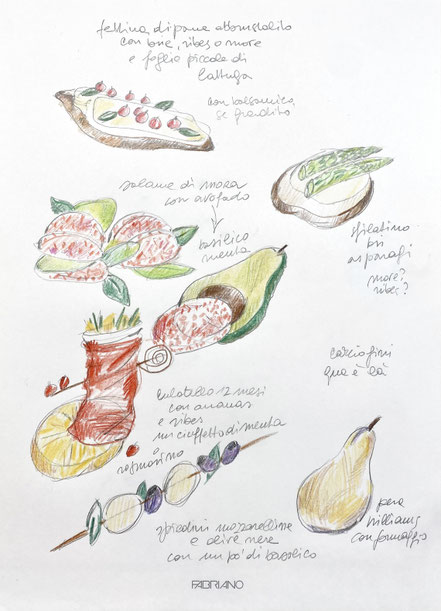 fettina di pane abbrustolito
con brie, ribes o more
e foglie piccole di
lattuga
con balsamico,
se gradito
salame di mora
con avocado
basilico
menta
filatino
bri
asparagi
more?
ribes?
carciofini
qua e là
culatello 12 mesi
con ananas
e ribes
un ciuffetto di menta
rosmarino
spiedini mozzarelline
e olive nere
con un po' di basilico
pera
williams
con formaggio
FABRIANO